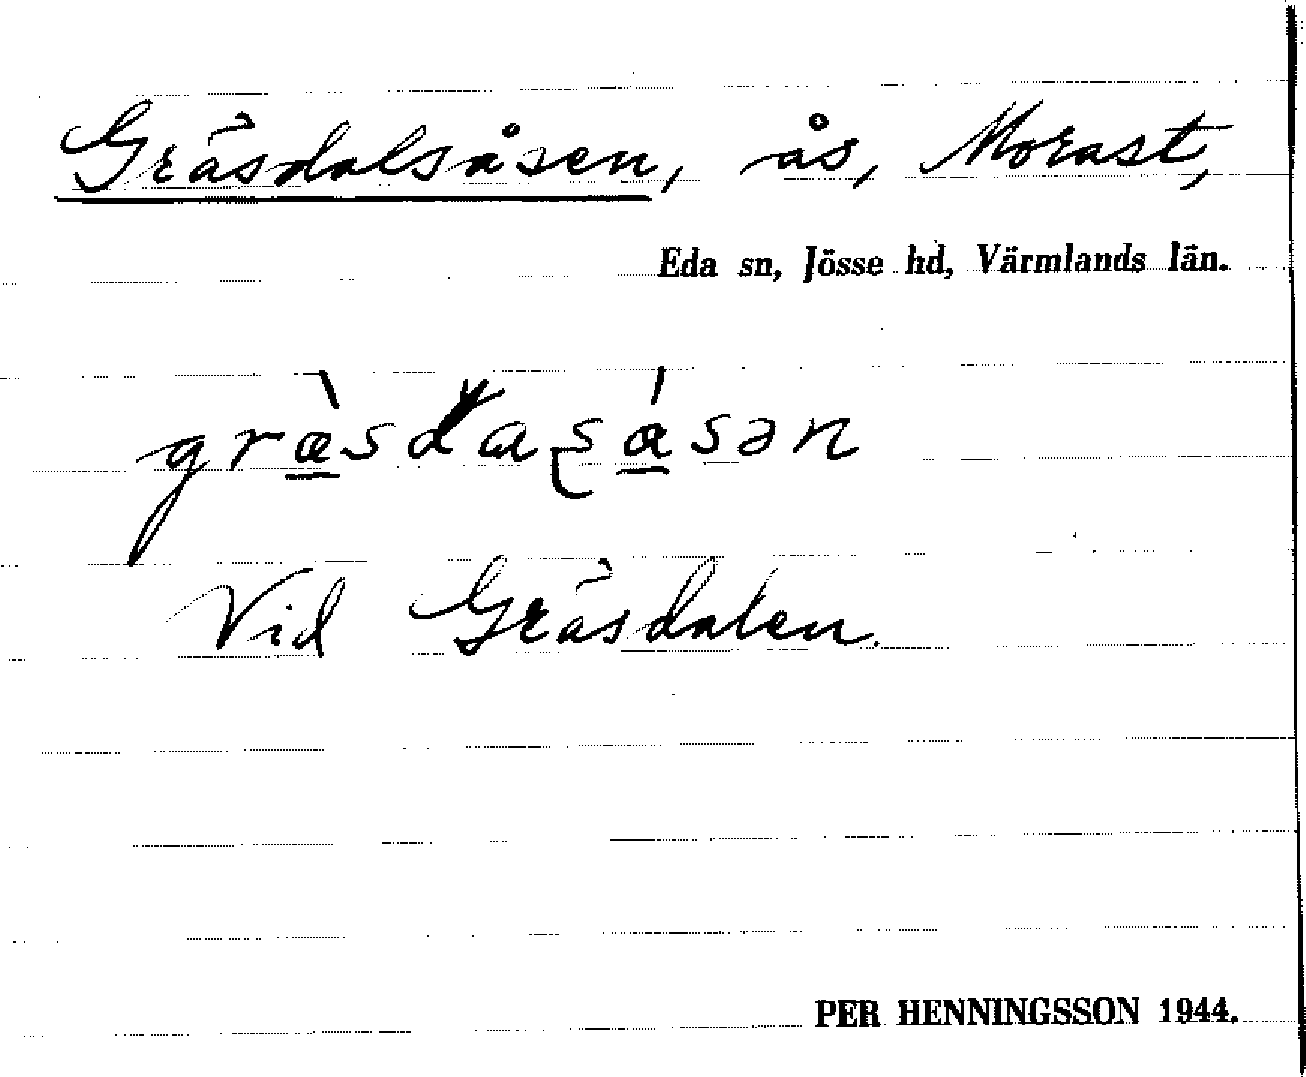 Gräsdalsåsen, ås, Morast,
Eda sn, Jösse hd, Värmlands län.
græ̀sdaʂásən
Vid Gräsdalen.
PER HENNINGSSON 1944.